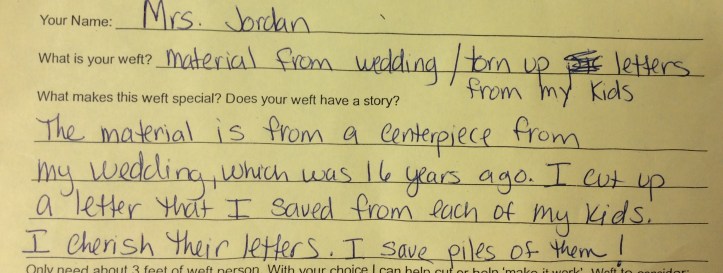 Your Name: Mrs. Jordan
What is your weft? material from wedding / torn up letters
from my kids
What makes this weft special? Does your weft have a story?
The material is from a centerpiece from
my wedding, which was 16 years ago. I cut up
a letter that I saved from each of my kids.
I cherish their letters. I save piles of them!
Only need about 3 feet of weft person. With your choice I can help cut or help 'make it work'. Weft to consider: